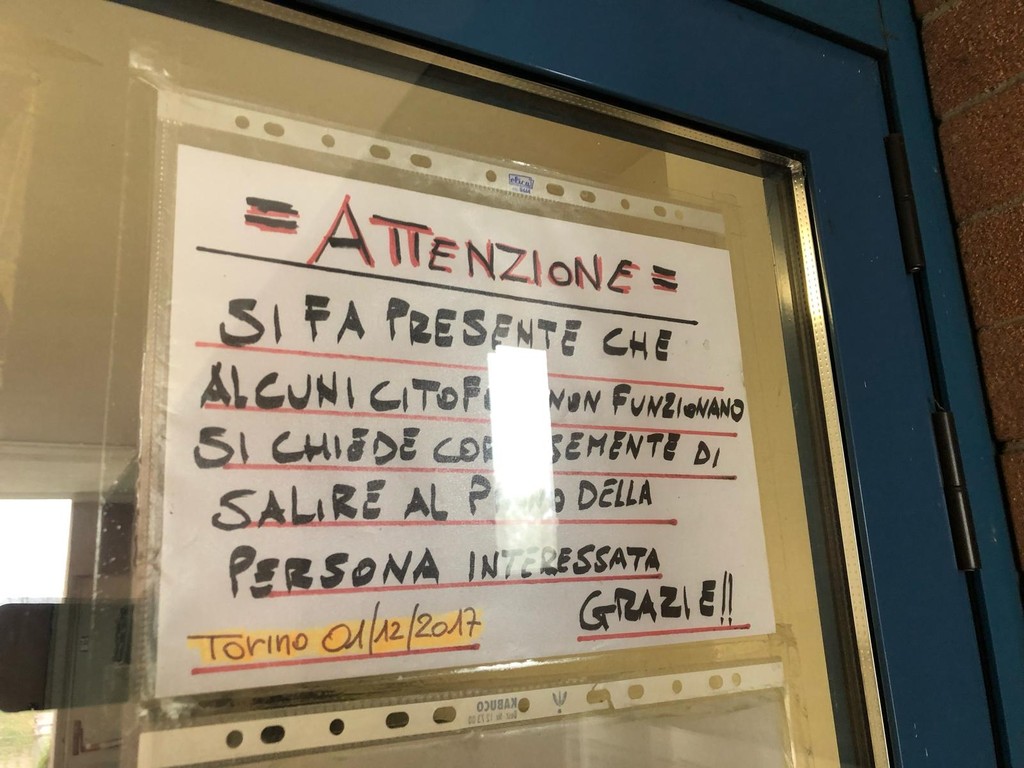 = ATTENZIONE =
SI FA PRESENTE CHE
ALCUNI CITOFONI NON FUNZIONANO
SI CHIEDE CORTESEMENTE DI
SALIRE AL PIANO DELLA
PERSONA INTERESSATA
GRAZIE!!
Torino 01/12/2017
KABUCO